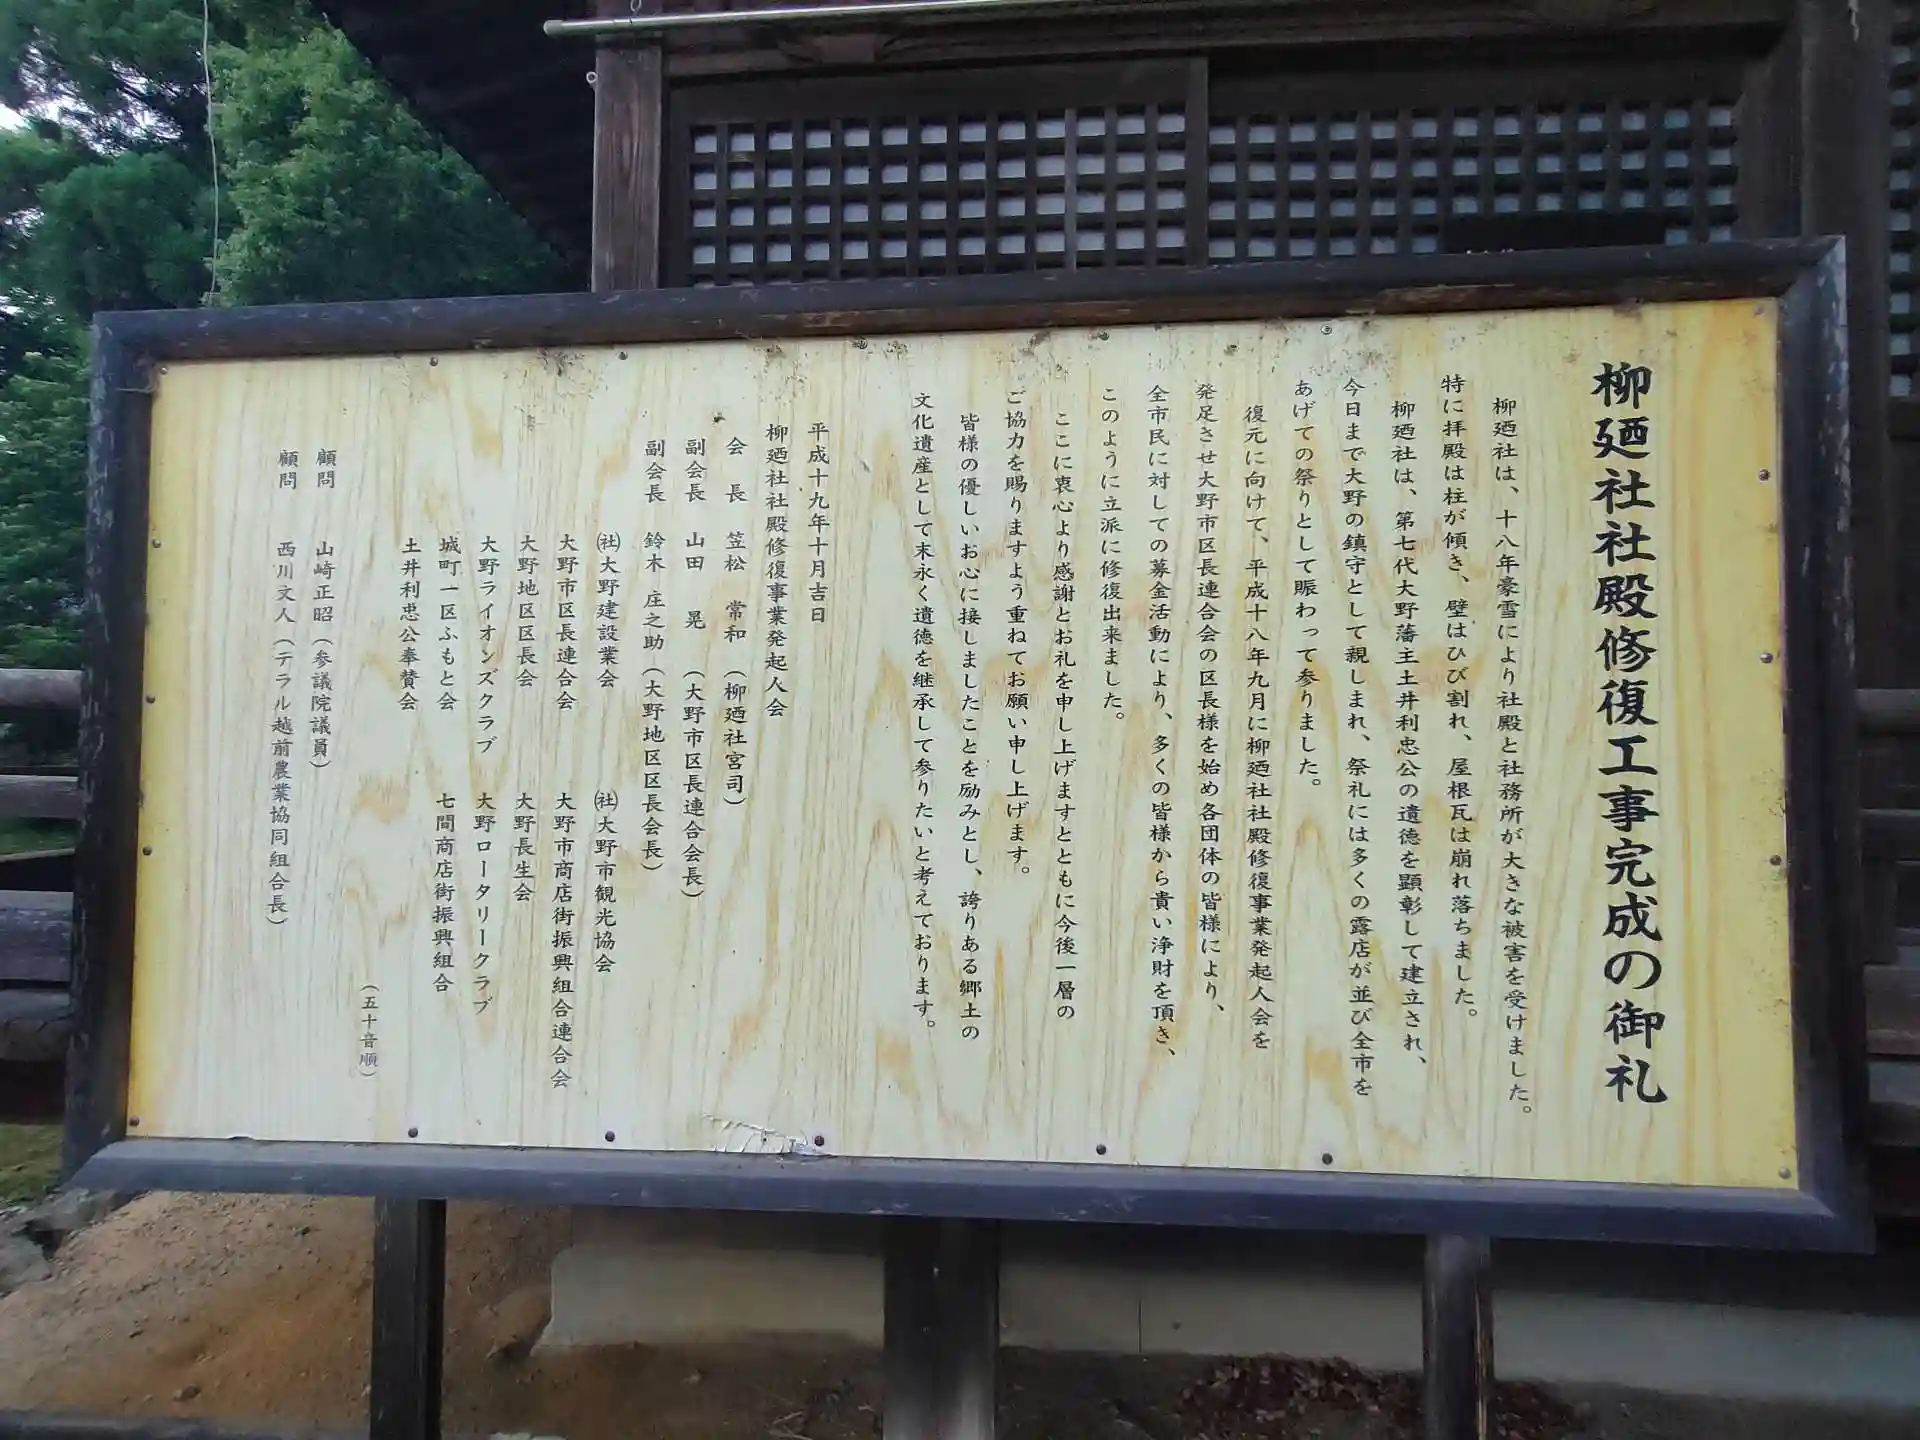 柳廼社社殿修復工事完成の御礼
柳廼社は、十八年豪雪により社殿と社務所が大きな被害を受けました。
特に拝殿は柱が傾き、壁はひび割れ、屋根瓦は崩れ落ちました。
柳廼社は、第七代大野藩主土井利忠公の遺徳を顕彰して建立され、
今日まで大野の鎮守として親しまれ、祭礼には多くの露店が並び全市を
あげての祭りとして賑わって参りました。
復元に向けて、平成十八年九月に柳廼社社殿修復事業発起人会を
発足させ大野市区長連合会の区長様を始め各団体の皆様により、
全市民に対しての募金活動により、多くの皆様から貴い浄財を頂き、
このように立派に修復出来ました。
ここに衷心より感謝とお礼を申し上げますとともに今後一層の
ご協力を賜りますよう重ねてお願い申し上げます。
皆様の優しいお心に接しましたことを励みとし、誇りある郷土の
文化遺産として末永く遺徳を継承して参りたいと考えております。
平成十九年十月吉日
柳廼社社殿修復事業発起人会
会　長　笠松　常和　（柳廼社宮司）
副会長　山田　　晃　（大野市区長連合会長）
副会長　鈴木　庄之助（大野地区区長会長）
㈳大野建設業会　㈳大野市観光協会
大野市区長連合会　大野市商店街振興組合連合会
大野地区区長会　大野長生会
大野ライオンズクラブ　大野ロータリークラブ
城町一区ふもと会　七間商店街振興組合
土井利忠公奉賛会
（五十音順）
顧問　山崎正昭（参議院議員）
顧問　西川文人（テラル越前農業協同組合長）